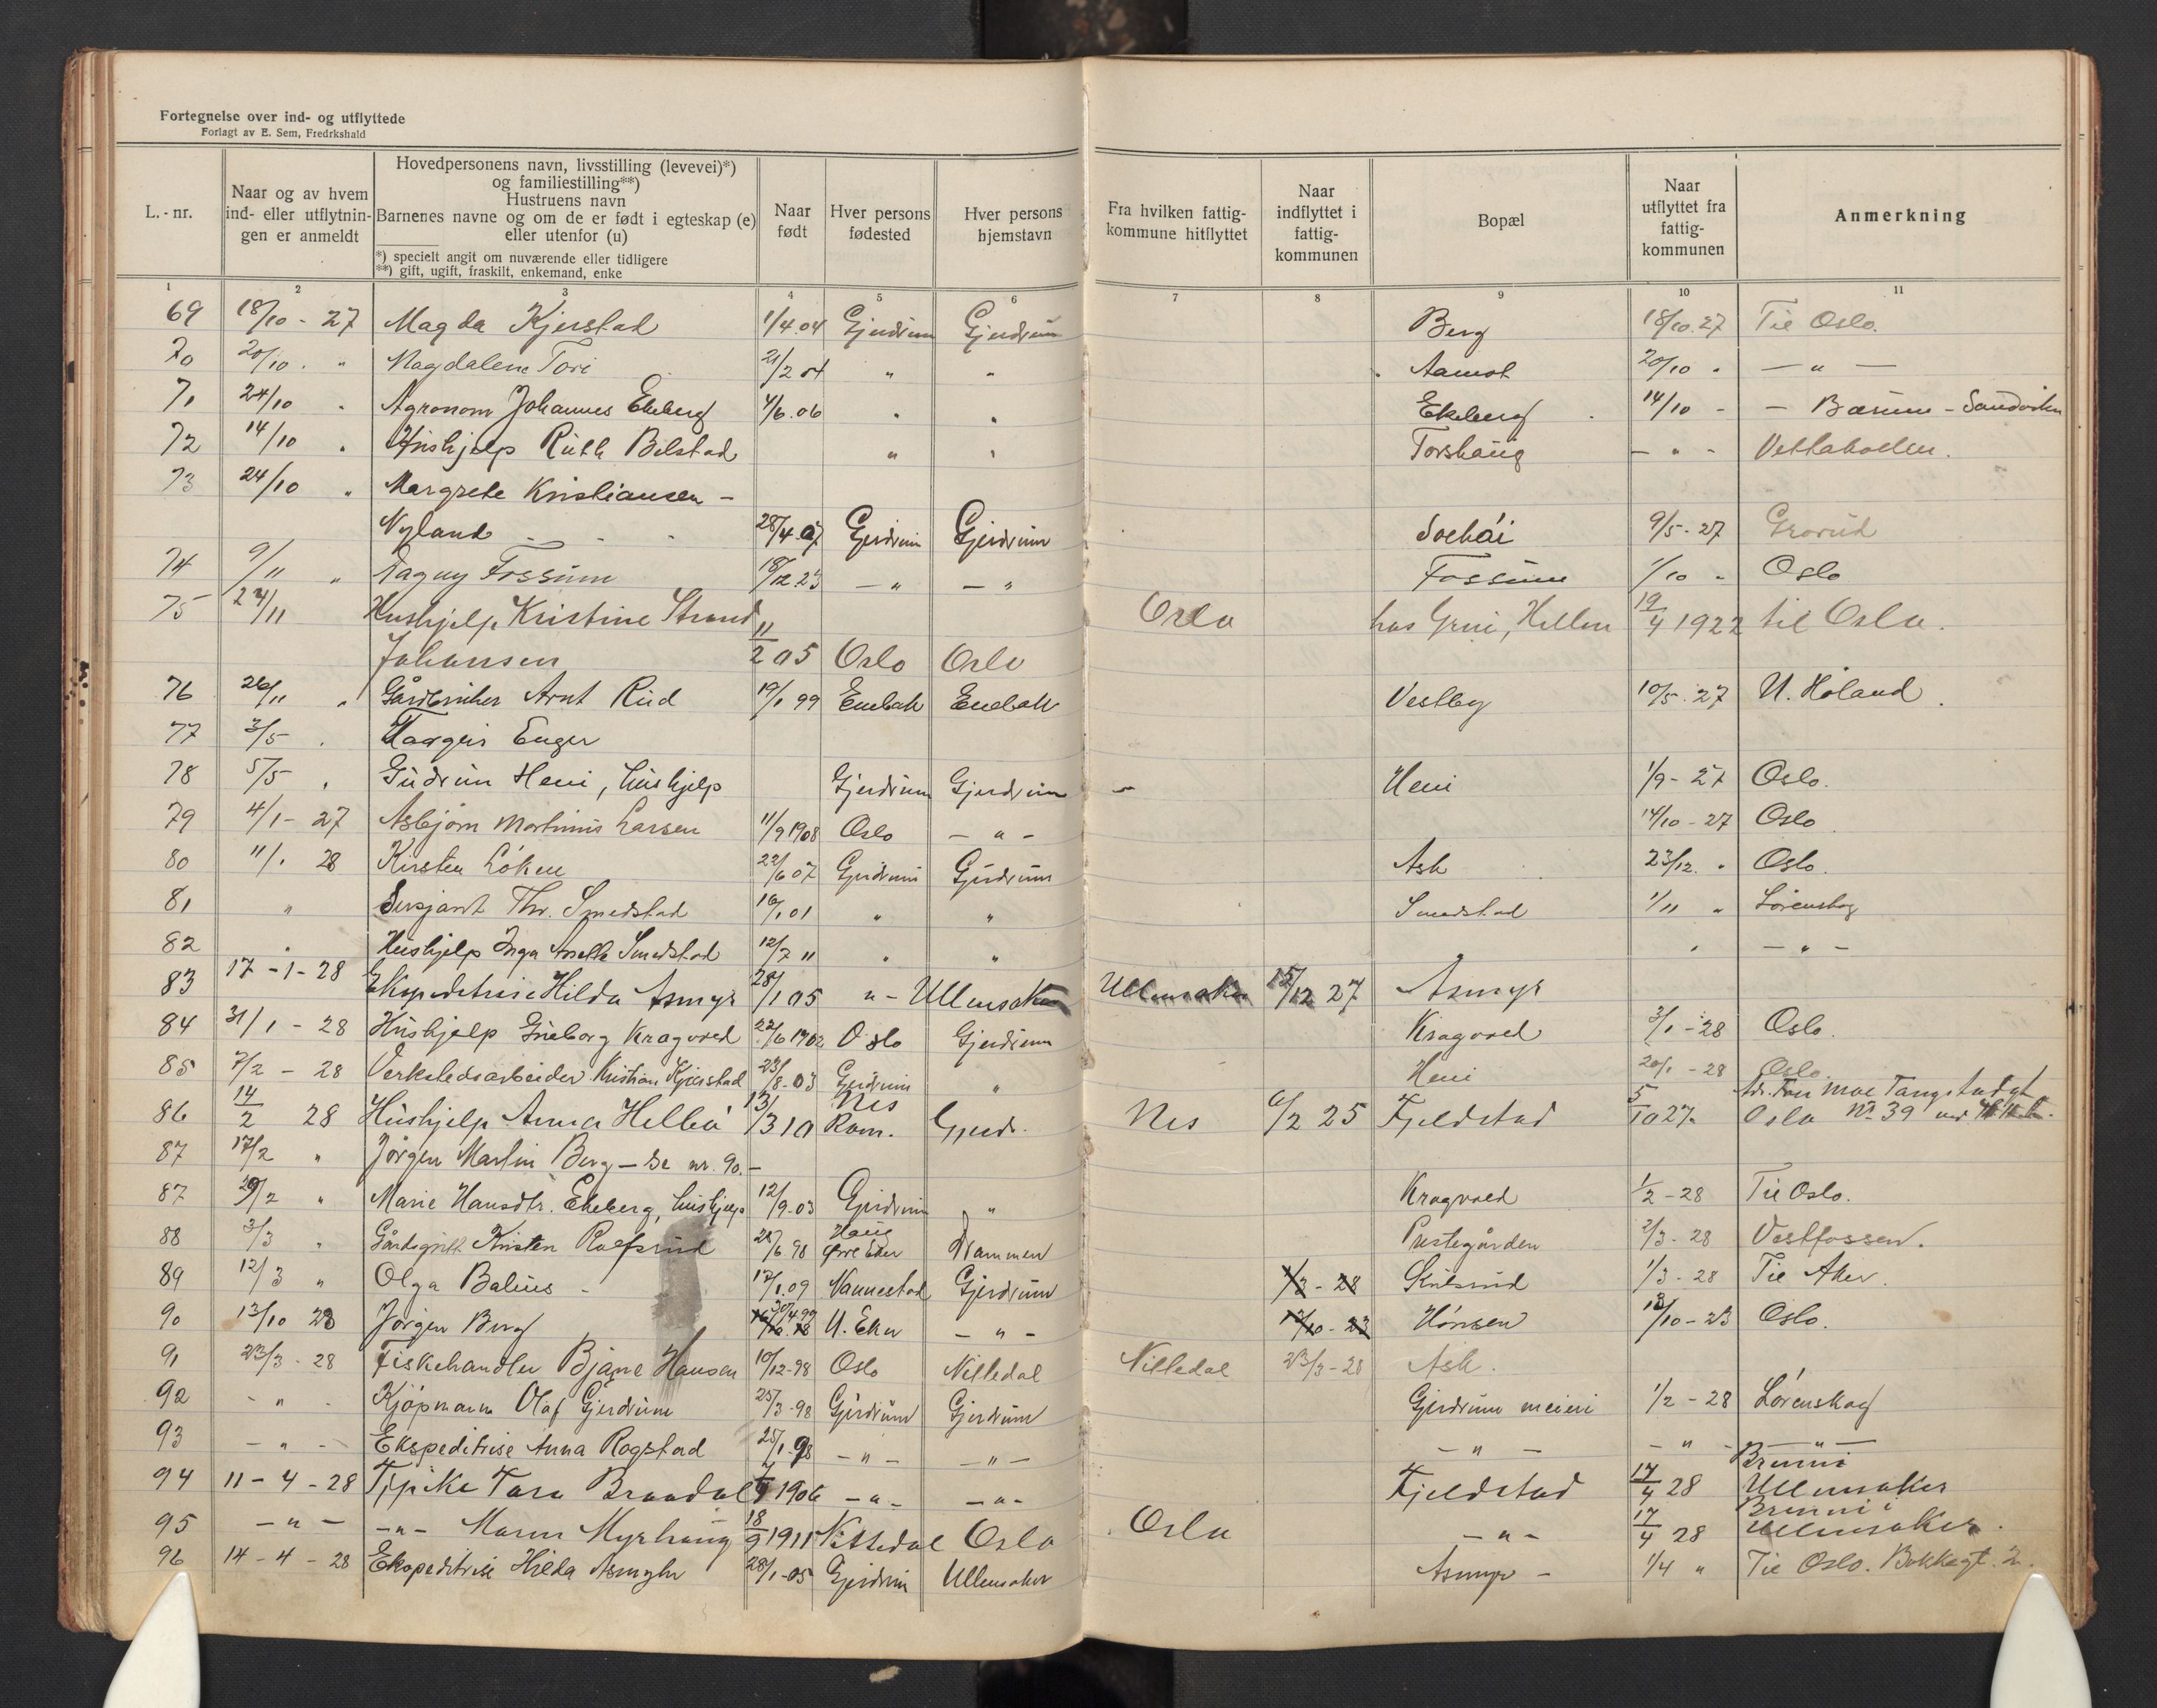 Fortegnelse over ind- og utflyttede
Forlagt av E. Sem, Fredrkshald
L.-nr.
Naar og av hvem
ind- eller utflytnin-
gen er anmeldt
Hovedpersonens navn, livsstilling (levevei)*)
og familiestilling**)
Hustruens navn
Barnenes navne og om de er født i egteskap (e)
eller utenfor (u)
*) specielt angit om nuværende eller tidligere
**) gift, ugift, fraskilt, enkemand, enke
Naar
født
Hver persons
fødested
Hver persons
hjemstavn
Fra hvilken fattig-
kommune hitflyttet
Naar
indflyttet i
fattig-
kommunen
Bopæl
Naar
utflyttet fra
fattig-
kommunen
Anmerkning
1 2 3 4 5 6 7 8 9 10 11
69 18/10 - 27 Magda Kjerstad 1/4.04 Gjerdrum Gjerdrum Berg 18/10.27 Til Oslo.
70 20/10 . " Magdalene Tori 21/2 04 " " Aamot 20/10 " — " —
71 24/10 " Agronom Johannes Ekeberg 4/6.06 " " Ekeberg 14/10 - - Bærum - Sandviken
72 14/10 " Hushjelp Ruth Bilstad " " Torshaug - " - Vettakollen.
73 24/10 " Margrete Kristiansen -
Nyland - - - 28/4.07 Gjerdrum Gjerdrum 9/5-27 Grorud
74 9/11 " Dagny Fossum 18/12 23 — " — " Fossum 1/10 " Oslo
75 24/11 Hushjelp Kristine Strand Oslo hos Grni, Hellen 19/4 1922 til Oslo.
Johansen 11/2 05 Oslo Oslo
76 26/11 " Gårdbruker Arnt Rud 19/1 99 Enebak Enebak Vestby 10/5.27 N. Høland.
77 3/5 . Haagen Enger
78 5/5 . Gudrun Heni, hushjelp Gjerdrum Gjerdrum - Heni 1/9-27 Oslo.
79 4/1-27 Asbjørn Martinius Larsen 11/9 1908 Oslo — " — 14/10-27 Oslo
80 11/1 28 Kirsten Løken 22/6 07 Gjerdrum Gjerdrum Ask 23/12. " Oslo.
81 " Sersjant Thr. Smedstad 16/1 01 " " Smedstad 1/11 " Lørenskog
82 " Hushjelp Inga Anette Smedstad 12/7 " " " " — " —
83 17-1-28 Ekspeditrise Hilda Asmyr 28/1 05 " - Ullensaker Ullensaker 15/12 27 Asmyr
84 31/1-28 Hushjelp Ingeborg Kragvoed 22/6 1902 Oslo Gjerdrum Kragvoed 3/1-28 Oslo.
85 7/2-28 Verkstedsarbeider Kristian Kjerstad 23/8-03 Gjerdrum " Heni 20/1-28 Oslo.
86 14/2 28 Hushjelp Anna Helleá 13/3 10 Nes Rom. Gjerdr. Nes 6/2 25 Fjeldstad 5/10 27 Oslo No 39
87 17/2 " Jørgen Martin Berg - se nr. 90. -
87 29/2 " Marie Hansdtr. Ekeberg, hushjelp 12/9-03 Gjerdrum " Kragvoed 1/2-28 Til Oslo.
88 3/3 " Gårdsgutt Kristen Rolfsrud 28/6.98 Haug Øvre Eker Drammen Prestegården 2/3-28 Vestfossen.
89 12/3 " Olga Balius - 17/1.09 Nannestad Gjerdrum 1/3-28 Skulsrud 1/3-28 Til Aker.
90 13/10 23 Jørgen Berg 30/4.99 N. Eker — " — 13/10-23 Hønsen 13/10-23 Oslo.
91 23/3-28 Fiskehandler Bjarne Hansen 10/12-98 Oslo Nittedal Nittedal 23/3-28 Ask.
92 - " - Kjøpmann Olaf Gjerdrum 25/3-98 Gjerdrum Gjerdrum Gjerdrum meieri 1/2-28 Lørenskog
93 - " - Ekspeditrise Anna Rogstad 25/1.98 — " — — " — — " — — " — — " —
94 11-4-28 Pike Tora Brandal 7/9 1906 — " — — " — Fjeldstad 17/4 28 Brunni Ullensaker
95 — " — - " - Maren Myrhaug 18/9 1911 Nittedal Oslo Oslo — " — 17/4 28 Brunni i Ullensaker.
96 14-4-28 Ekspeditrise Hilda Asmyhr 28/1-05 Gjerdrum Ullensaker Asmyr - 1/4 " Til Oslo. Bakkegt. 2.